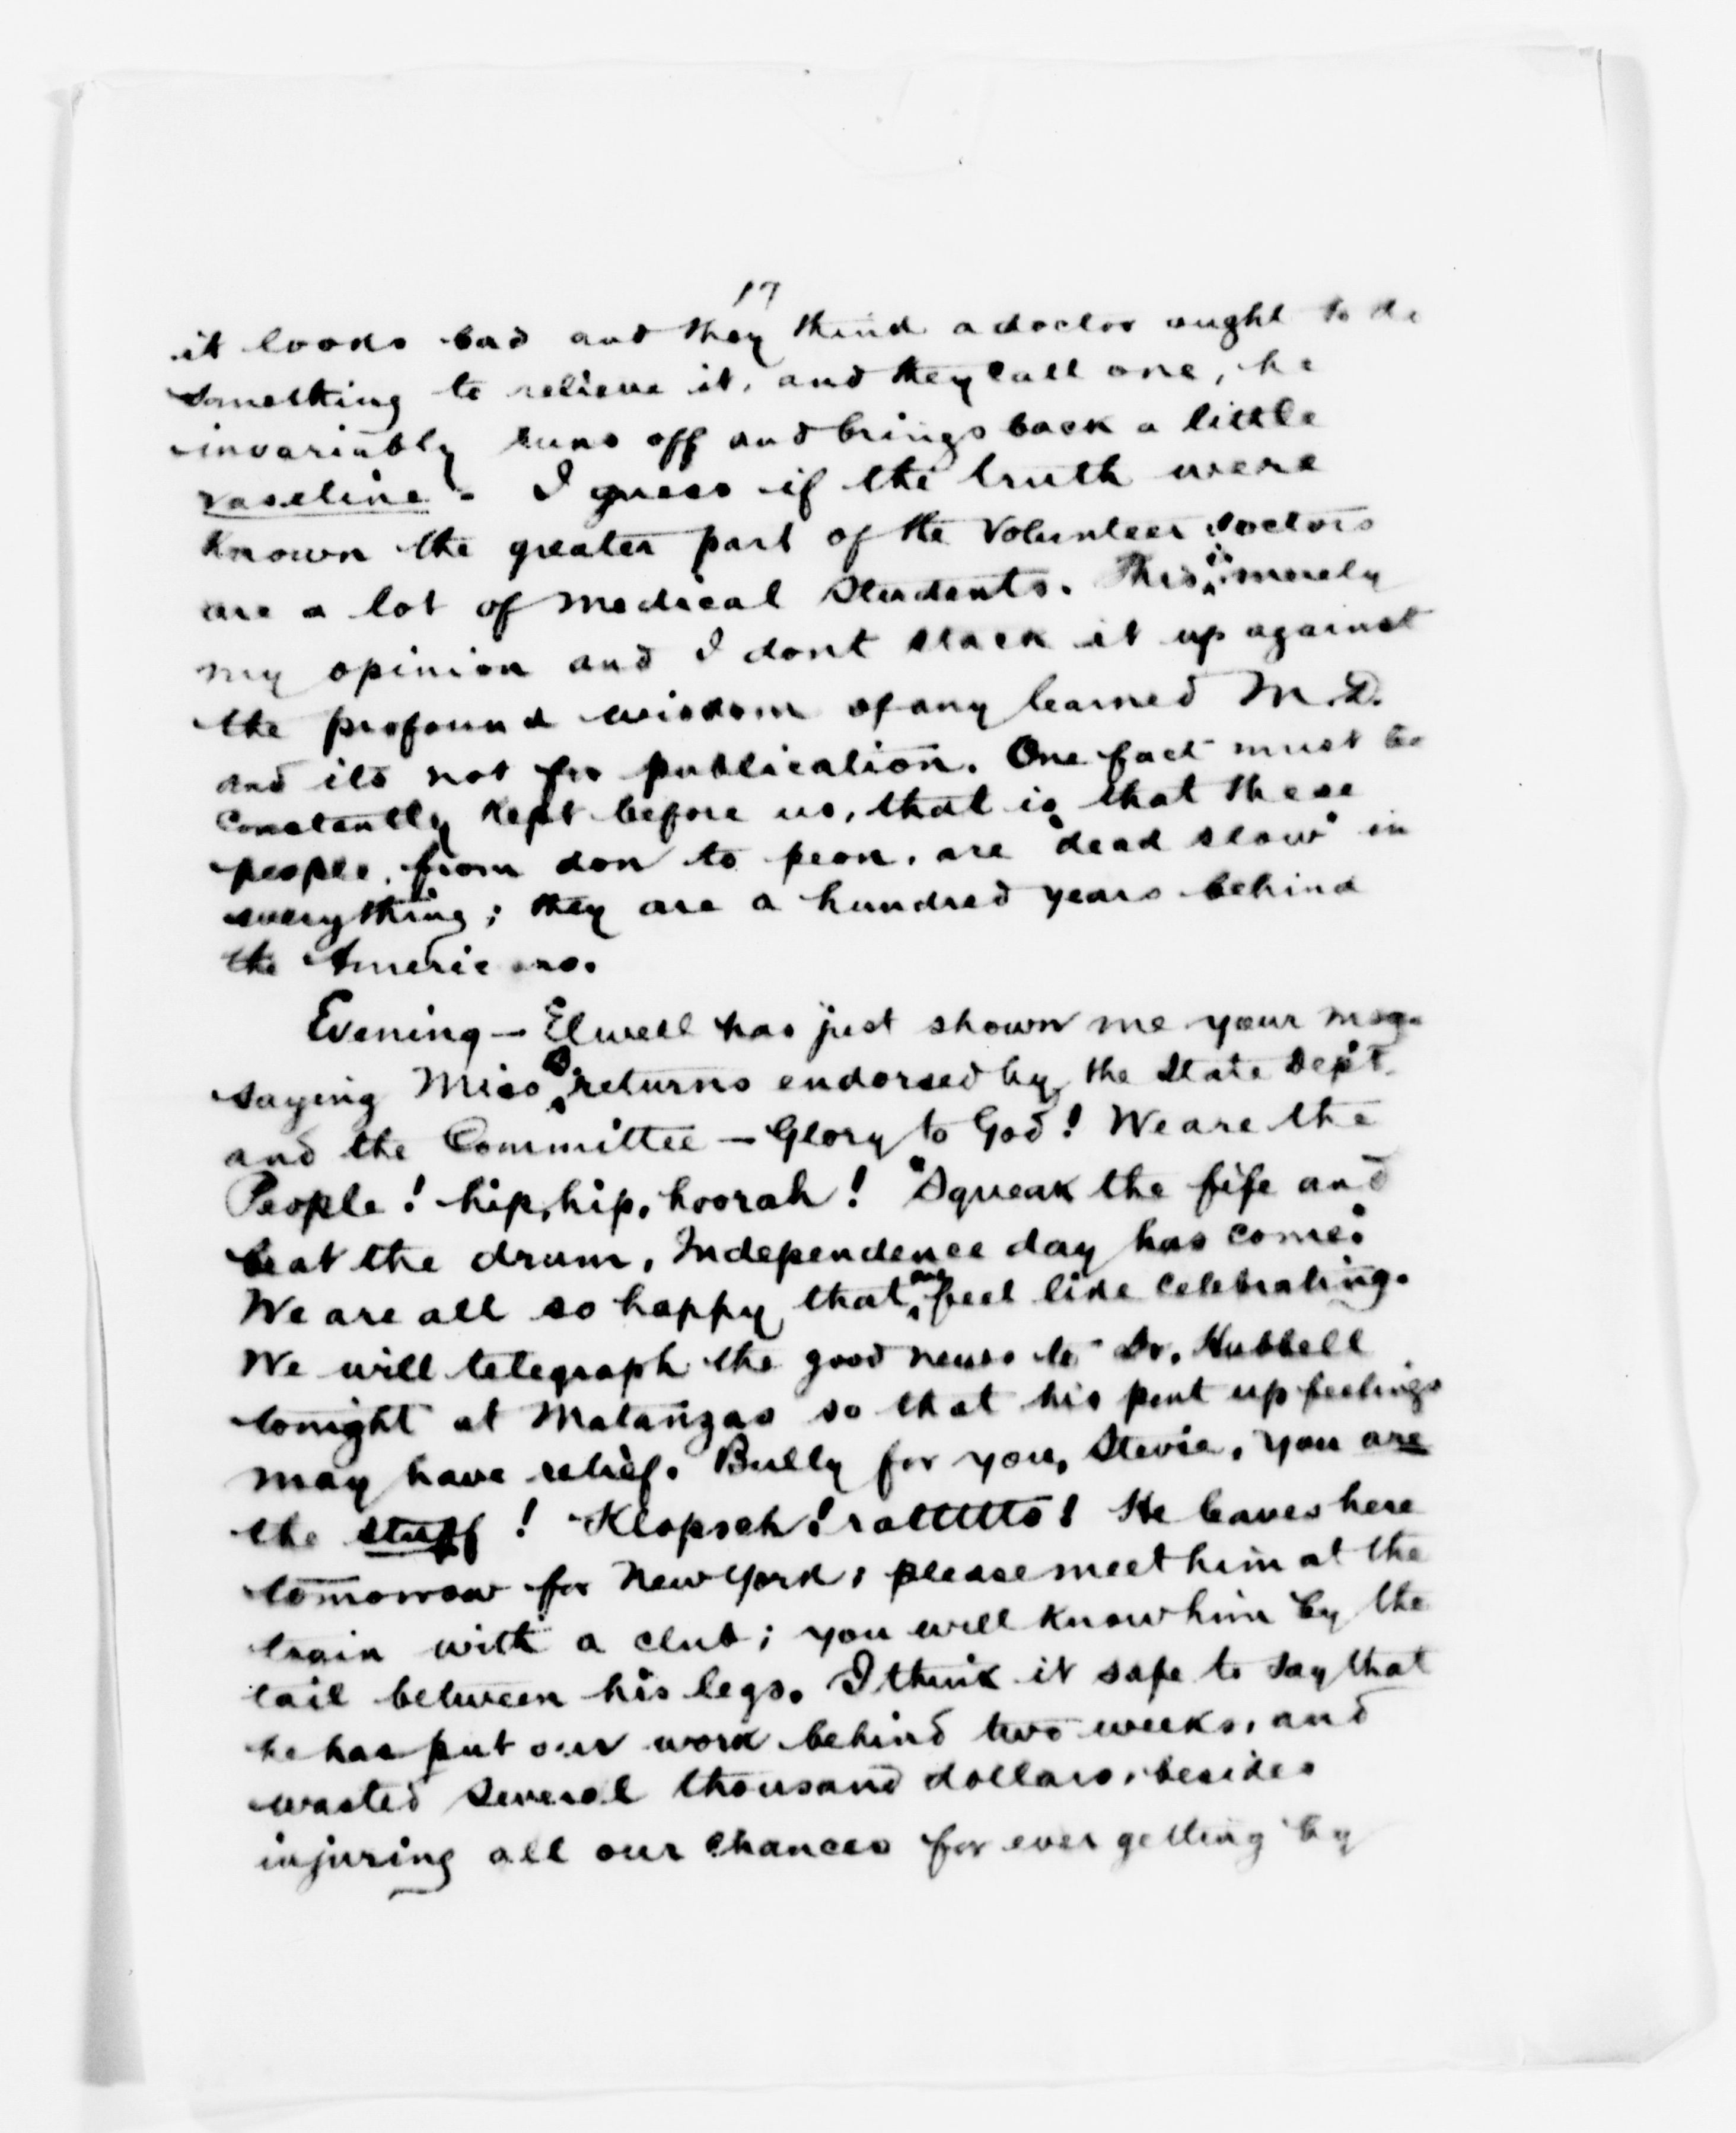 17
it looks bad and they think a doctor ought to do
something to relieve it, and they call one, he
invariably runs off and brings back a little
vaseline. I guess if the truth were
known the greater part of the Volunteer doctors
are a lot of medical students. This is merely
my opinion and I dont stack it up against
the profound wisdom of any learned M.D.
and its not for publication. One fact must be
constantly kept before us, that is that these
people, from don to peon, are "dead slow" in
everything; they are a hundred years behind
the Americans.
Evening – Elwell has just shown me your msg.
saying Miss B. returns endorsed by the State Dept.
and the Committee – Glory to God! We are the
People! hip, hip, hoorah! "Squeak the fife and
beat the drum, Independence day has come."
We are all so happy that we feel like celebrating.
We will telegraph the good news to Dr. Hubbell
tonight at Matanzas so that his pent up feelings
may have relief. Bully for you, Stevie, you are
the stuff! Klopsch! ratttttts! He leaves here
tomorrow for New York; please meet him at the
train with a club; you will know him by the
tail between his legs. I think it safe to say that
he has put our work behind two weeks, and
wasted several thousand dollars, besides
injuring all our chances for ever getting by